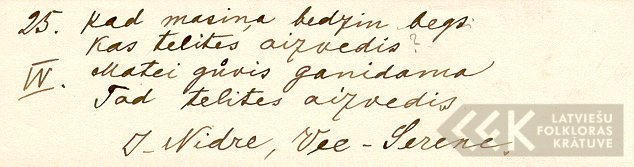 25. Kad masiņa bedzin begs
Kas telites aizvedis?
IV. Matei gůvis ganidama
Tad telites aizvedis
J-Nidre, Vec-Serene.
LATVIEŠU
FOLKLORAS
KRĀTUVE